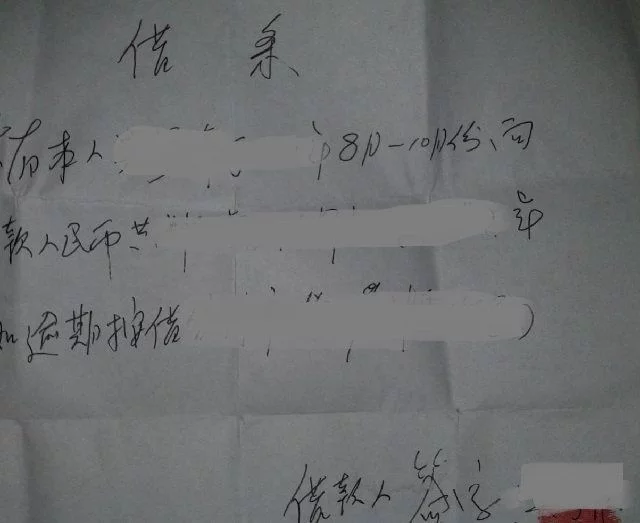 借 条
本人 8月—10月份、向
款人民币共 年
逾期按借 )
借款人 签字